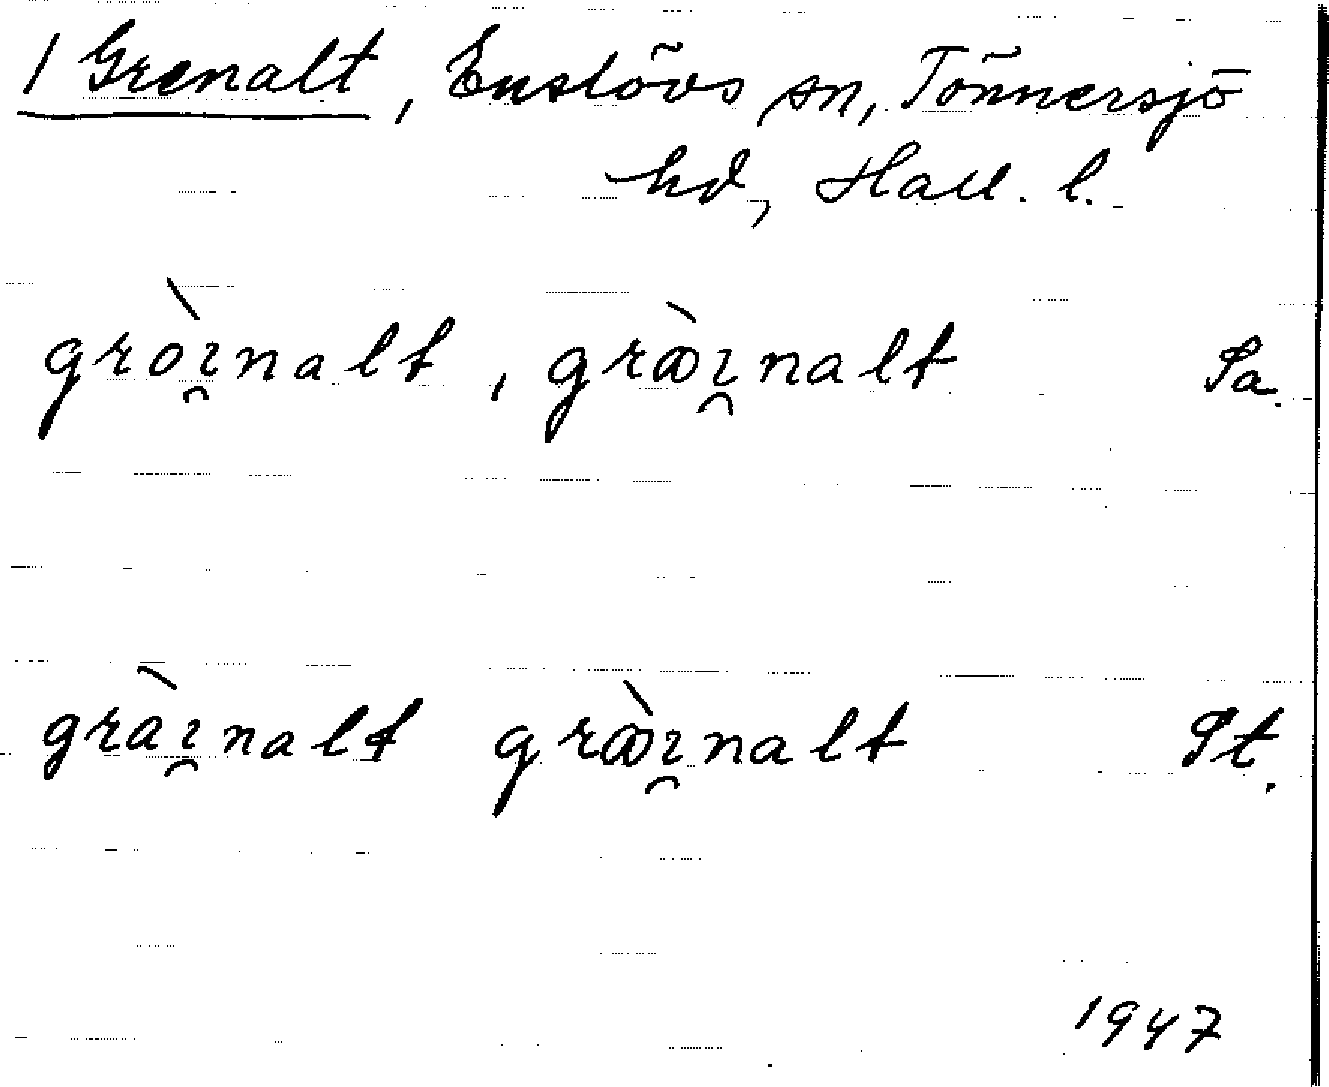 1 Grenalt, Enslövs sn, Tönnersjö
hd, Hall. l.
gròɪ̯nalt, græ̀ɪ̯nalt Sa.
gràɪ̯nalt græ̀ɪ̯nalt St.
1947